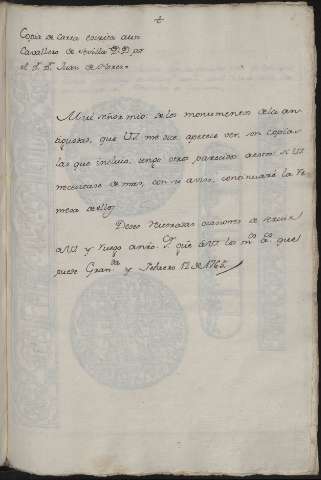 Copia de carta escrita a un
Cavallero de Sevilla por
el S.r D.n Juan de Flores
Mui señor mio: de los monumentos de la an-
tiguedad, que US me dice apetece ver, son copias
las que incluio, tengo otros parecidos a estos si US
necesitase de mas, con su aviso, continuaré la re-
mesa de ellos
Deseo numerosas ocasiones de servir
a US y ruego a nro S.r que a US los m.s a.s que
puede Gran.da y Febrero 12 de 1765